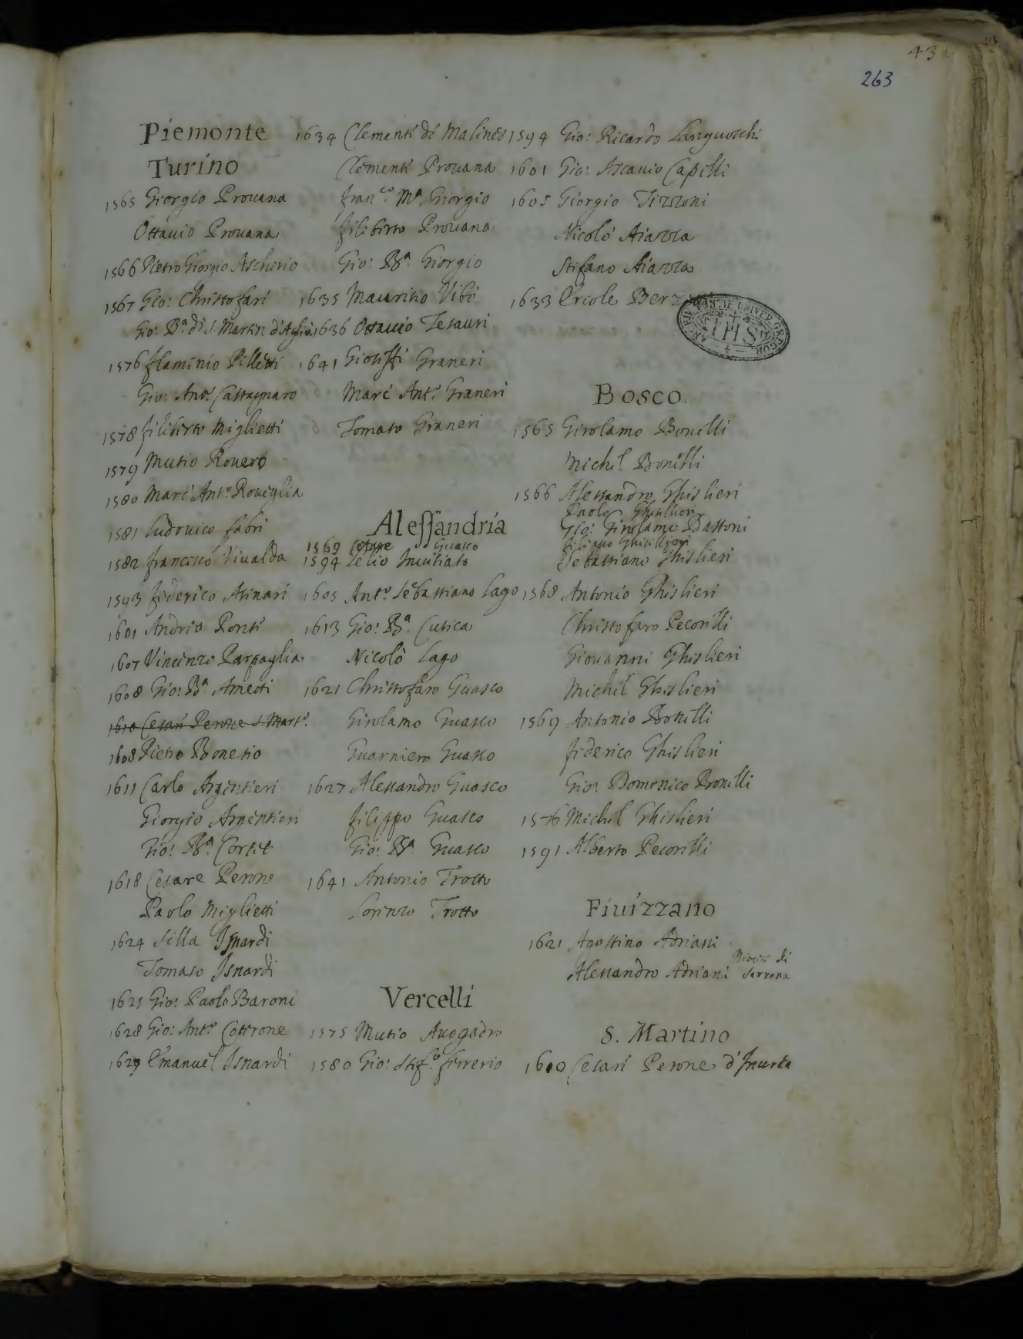 43
263
Piemonte
Turino
1565 Giorgio Provana
Ottavio Provana
1566 Pietro Giorgio Ascherio
1567 Gio: Christofari
Gio: Bª. di S. Martin d'Aglie
1576 flaminio Pilletti
Gio: Antº. Castagnaro
1578 filiberto Miglietti
1579 Mutio Rovero
1580 Marc'Antº. Roviglia
1581 Ludovico fabri
1582 francesco Vivalda
1593 federico Asinari
1601 Andrea Ponte
1607 Vincenzo Parpaglia
1608 Gio: Bª. Amedei
1610 Cesare Perone S. Martº.
1608 Pietro Bonetio
1611 Carlo Argentieri
Giorgio Argentieri
Gio: Bª.
1618 Cesare Perone
Paolo Miglietti
1624 Silla Isnardi
Tomaso Isnardi
1625 Gio: Paolo Baroni
1628 Gio: Antº.
1629 Emanuel Isnardi
1634 Clemente di Malines
Clemente Provana
franco. Mª. Giorgio
filiberto Provana
Gio: Bª. Giorgio
1635 Mauritio Vibo
1636 Ottavio Tesauri
1641 Gioseffo Graneri
Marc'Antº. Graneri
Tomaso Graneri
Alessandria
1569 Cesare Guasco
1594 Lelio Inviziato
1605 Antº. Sebastiano Lago
1613 Gio: Bª. Cutica
Nicolò Lago
1621 Christofaro Guasco
Girolamo Guasco
Guarniero Guasco
1627 Alessandro Guasco
filippo Guasco
Gio: Bª. Guasco
1641 Antonio Trotto
Lorenzo Trotto
Vercelli
1575 Mutio Avogadro
1580 Gio: Stefº. ferrerio
1594 Gio: Ricardo Languschi
1601 Gio: Ascanio Capelli
1605 Giorgio Tizzoni
Nicolò Aiazza
Stefano Aiazza
1633 Ercole
IHS
Bosco
1565 Girolamo Bonelli
Michel Bonelli
1566 Alessandro Ghislieri
Paolo Ghislieri
Gio: Girolamo Bastoni
filippo Ghislieri
Sebastiano Ghislieri
1568 Antonio Ghislieri
Christofaro Pecorelli
Giovanni Ghislieri
Michel Ghislieri
1569 Antonio Bonelli
federico Ghislieri
Gio: Domenico Bonelli
1576 Michel Ghislieri
1591 Alberto Pecorelli
Fiuizzano
1621 Agostino Adriani
Alessandro Adriani
S. Martino
1600 Cesare Perone